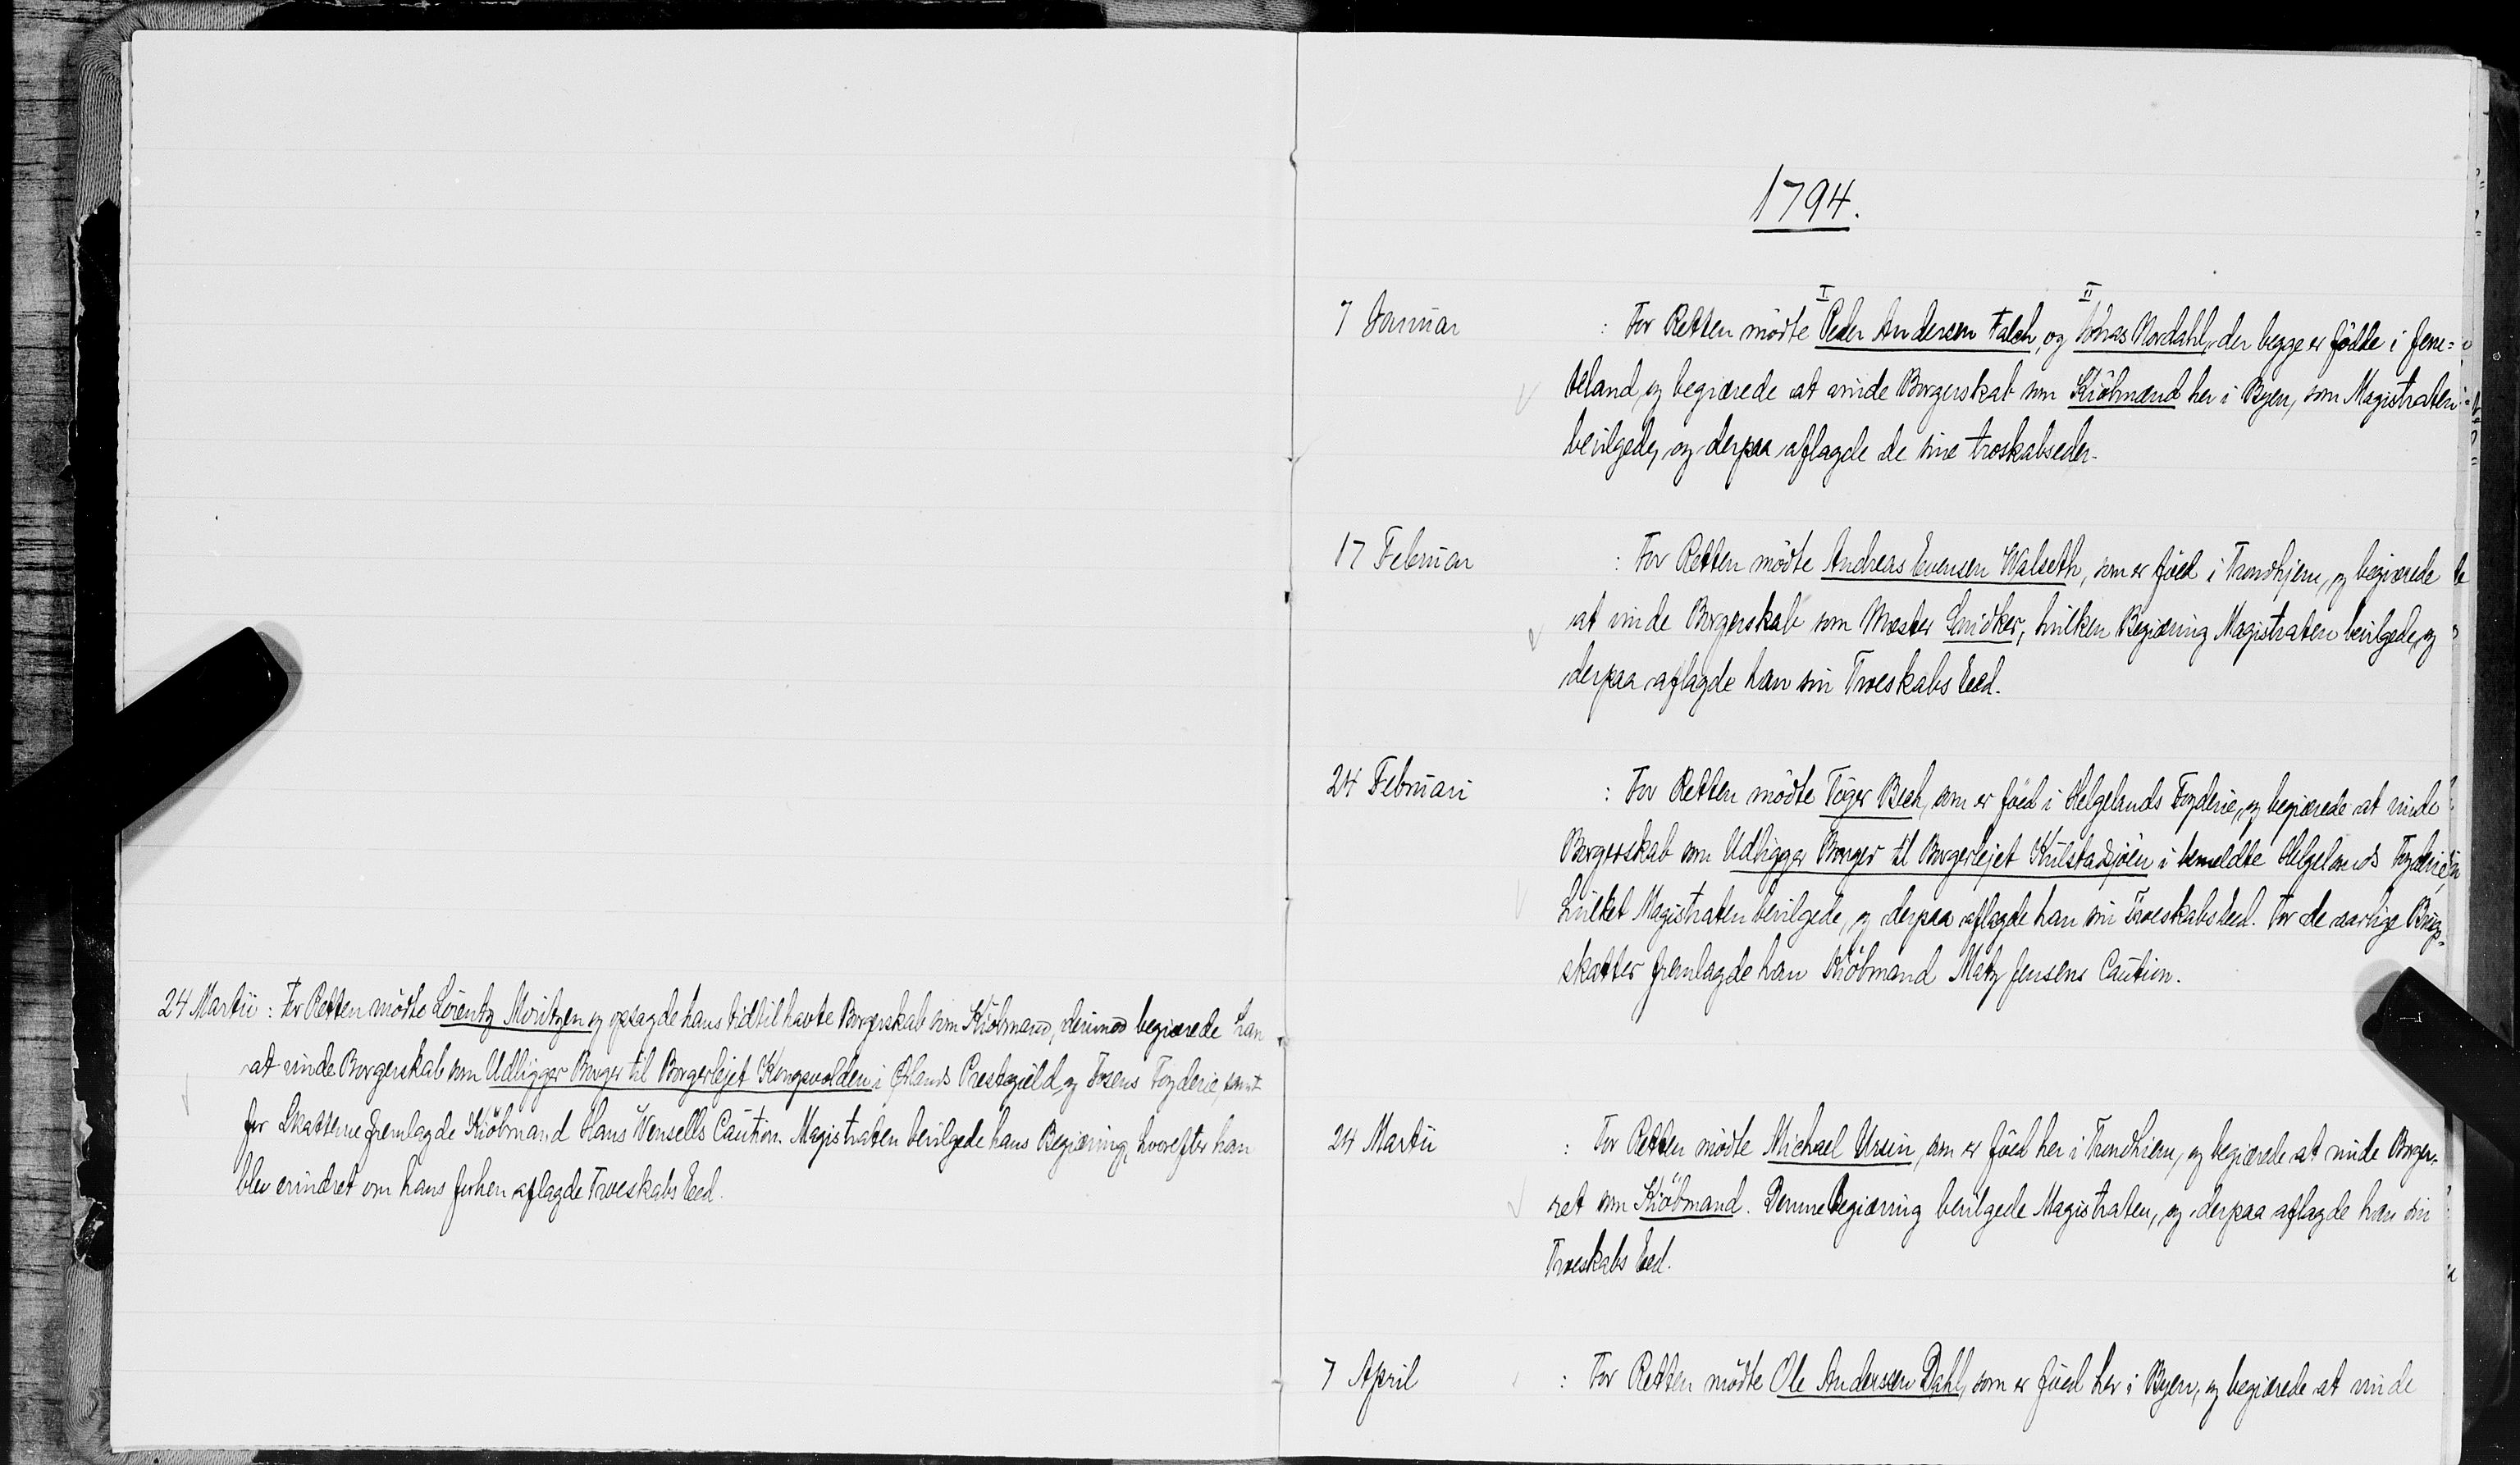 24 Martii : For Retten mödte Lorentz Moritzen og opsagde hans tidtil havte Borgerskab som Kiöbmand, derimod begiærede han
at vinde Borgerskab som Udligger Borger til Borgerlejet Kongsvolden i Ørlands Prestegield og Fosens Fogderie, samt
for Skatterne fremlagde Kiöbmand Hans Wensells Caution. Magistraten bevilgede hans Begiæring, hvorefter han
blev erindret om hans forhen aflagde Troeskabs Eed.
1794.
I II
7 Januar : For Retten mödte Peder Andersen Falch, og Jonas Nordahl, der begge er födde i Jem=
teland, og begiærede at vinde Borgerskab som Kiöbmænd her i Byen, som Magistraten
bevilgede, og derpaa aflagde de sine troskabseder.
17 Februar : For Retten mödte Andreas Evensen Walseth, som er föed i Trondhjem, og begiærede
at vinde Borgerskab som Mester Snidker, hvilken Begiæring Magistraten bevilgede, og
derpaa aflagde han sin Troeskabs Eed.
24 Februari : For Retten mödte Töger Bech, som er föed i Helgelands Fogderie, og begiærede at vinde
Borgerskab som Udligger Borger til Borgerlejet Kulstadsjöen i bemeldte Helgelands Fogderie,
hvilket Magistraten bevilgede, og derpaa aflagde han sin Troeskabs Eed. For de aarlige
skatter fremlagde han Kiöbmand Matz Jensens Caution.
24 Martii : For Retten mödte Michael Ursin, som er föed her i Trondhiem, og begiærede at vinde Borger=
ret som Kiöbmand. Denne Begiæring bevilgede Magistraten, og derpaa aflagde han sin
Troeskabs Eed.
7 April : For Retten mödte Ole Andersen Dahl, som er föed her i Byen, og begiærede at vinde